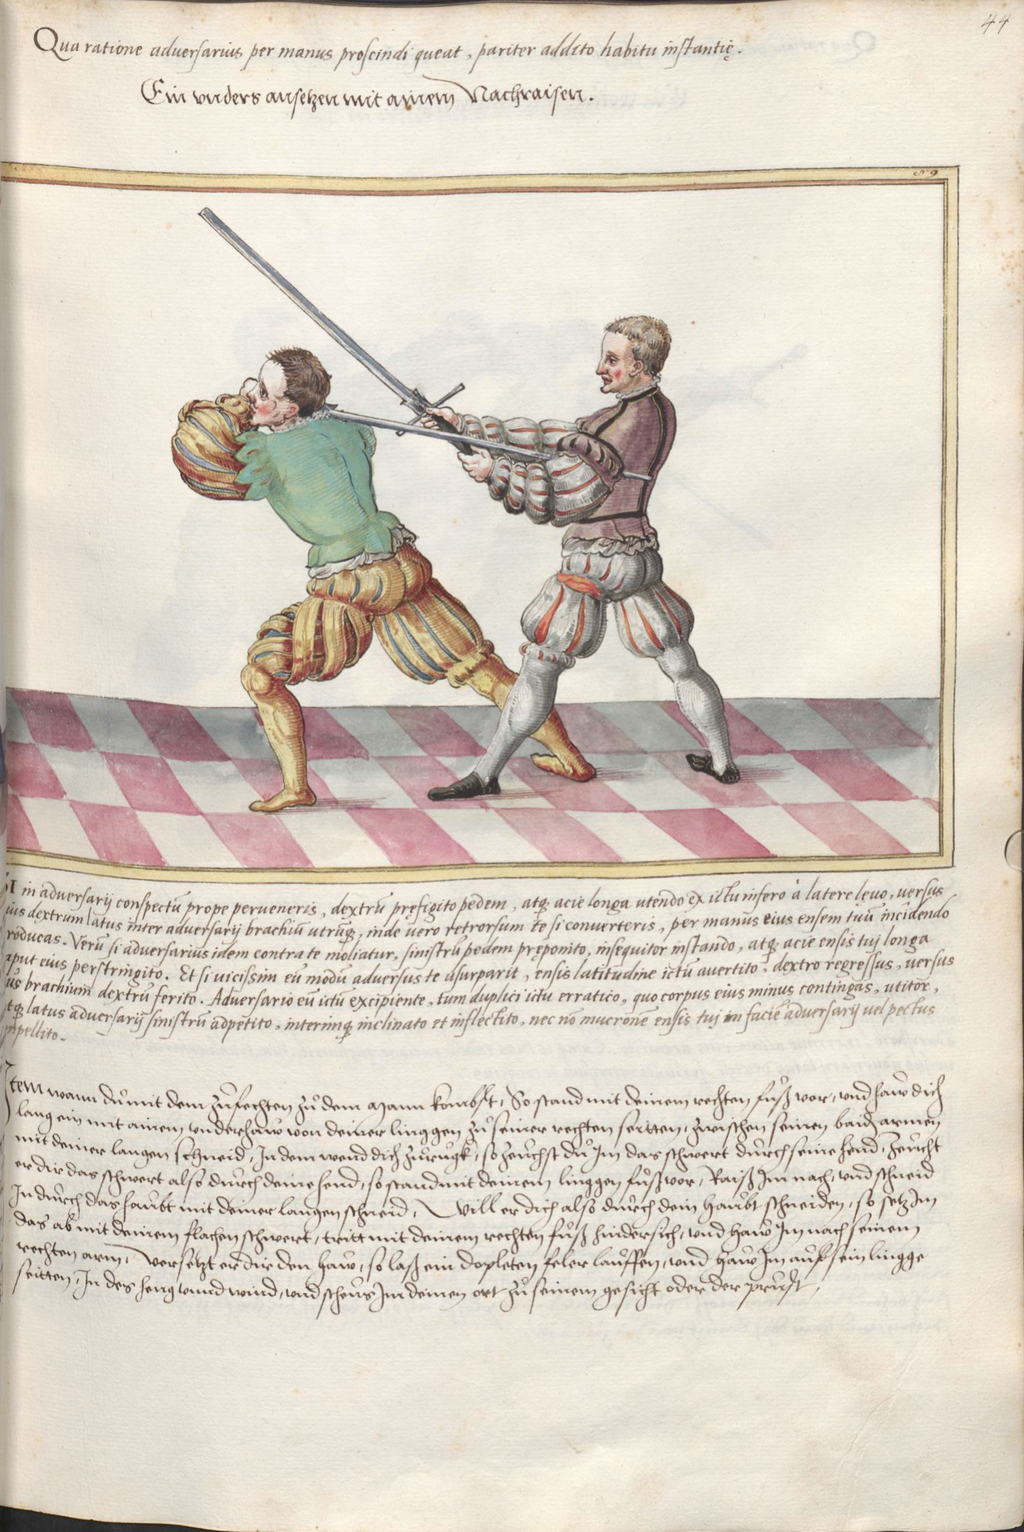 44
Qua ratione adversarius per manus proscindi queat, pariter addito habitu instantię.
Ein unders ansetzen mit ainem Nachraisen.
89
SI in adversarij conspectu prope perveneris, dextrũ pręfigito pedem, atq; acie longa utendo ex ictu infero à latere lęvo, versus
ius dextrum latus inter adversarij brachiũ utrũq;, inde vero retrorsum te si converteris, per manus eius ensem tuũ incidendo
roducas. Verũ si adversarius idem contra te moliatur, sinistrũ pedem pręponito, insequitor instando, atq; acie ensis tuj longa
aput eius perstringito. Et si vicissim eũ modũ adversus te usurparit, ensis latitudine ictũ avertito, dextro regressus, versus
us brachium dextrũ ferito. Adversario eũ ictũ excipiente, tum duplici ictu erratico, quo corpus eius minus contingas, utitor,
tq; latus adversarij sinistrũ adpetito, interimq; inclinato et inflectito, nec nõ mucronem ensis tuj in facię adversarij vel pectus
mpellito.
Item wann du mit dem zufechten zu dem Mann kombst, So stand mit deinem rechten fuß vor, und haw dich
lang ein mit ainem underhaw von deiner linggen zu seiner rechten seitten, zwischen seinen baid armen
mit deiner langen schneid, In dem wend dich zurugk, so zeuchst du Im das schwert durch seine hend, Zeucht
er dir das schwert also durch deine hend, so stand mit deinem linggen fuß vor, Raiß Im nach, und schneid
In durch das haubt mit deiner langen schneid, Will er dich also durch dein haubt schneiden, so setz Im
das ab mit deinem flachen schwert, tritt mit deinem rechten fuß hindersich, und haw Im nach seinem
rechten arm, Versetzt er dir den haw, so laß ein dopleten feler lauffen, und haw Im auf sein lingge
seitten, In des heng unnd wind, und scheus Im deinen ort zu seinem gesicht oder der prust,